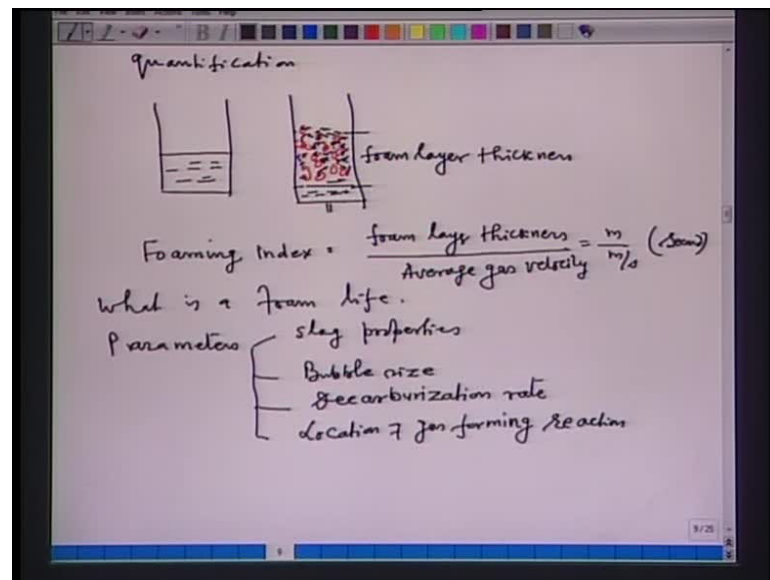 quantification
foam layer thickness
Foaming index = foam layer thickness / Average gas velocity = m / m/s (Secon)
What is a foam life.
Parameters
slag properties
Bubble size
Decarburization rate
Location of gas forming reaction
9/25
9